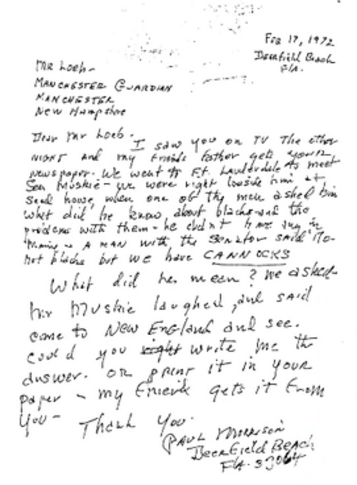 Feb 17, 1972
Deerfield Beach
Fla.
Mr Loeb-
Manchester Guardian
Manchester
New Hampshire
Dear Mr Loeb-
I saw you on TV the other
night and my friends father gets your
newspaper. We went to Ft. Lauderdale to meet
Sen Muskie - we were right beside him at
house, when one of the men asked him
what did he know about blacks and the
problems with them - he didn't have any in
- A man with the Senator said No-
not blacks but we have CANNOCKS
What did he mean? We asked-
Mr Muskie laughed, and said
come to New England and see.
Could you write me the
answer. Or print it in your
paper - my friend gets it from
you-
Thank you.
Paul Morrison
Deerfield Beach
Fla. 33064